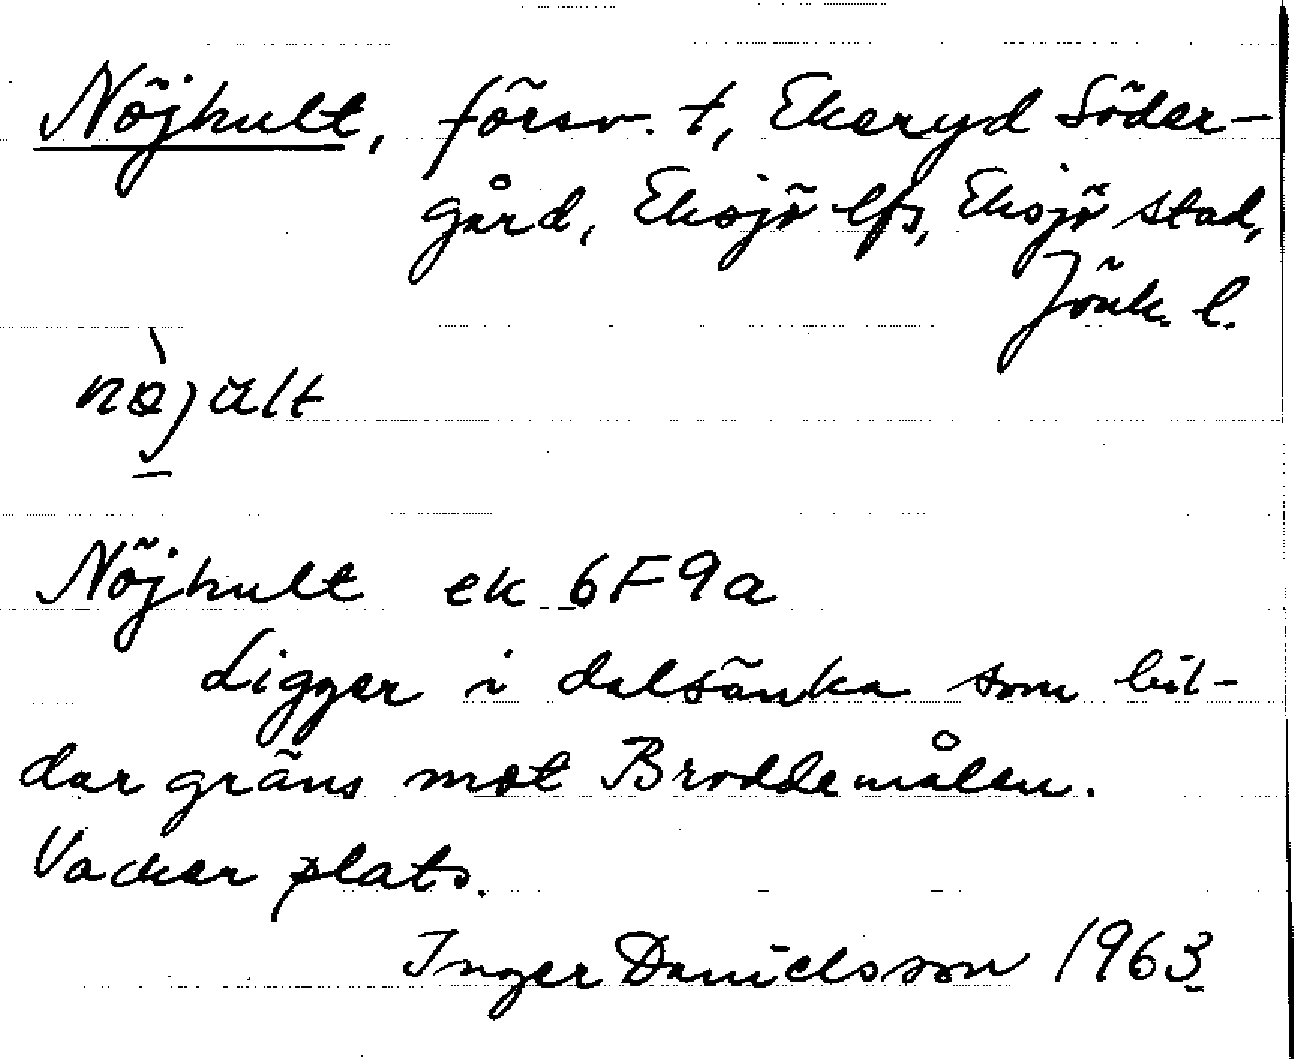 Nöjhult, försv. t, Ekeryd Söder-
gård, Eksjö lfs, Eksjö stad,
Jönk. l.
nø̀jult
Nöjhult ek 6F9a
Ligger i dalsänka som bil-
dar gräns mot Broddemålen.
Vacker plats.
Inger Danielsson 1963